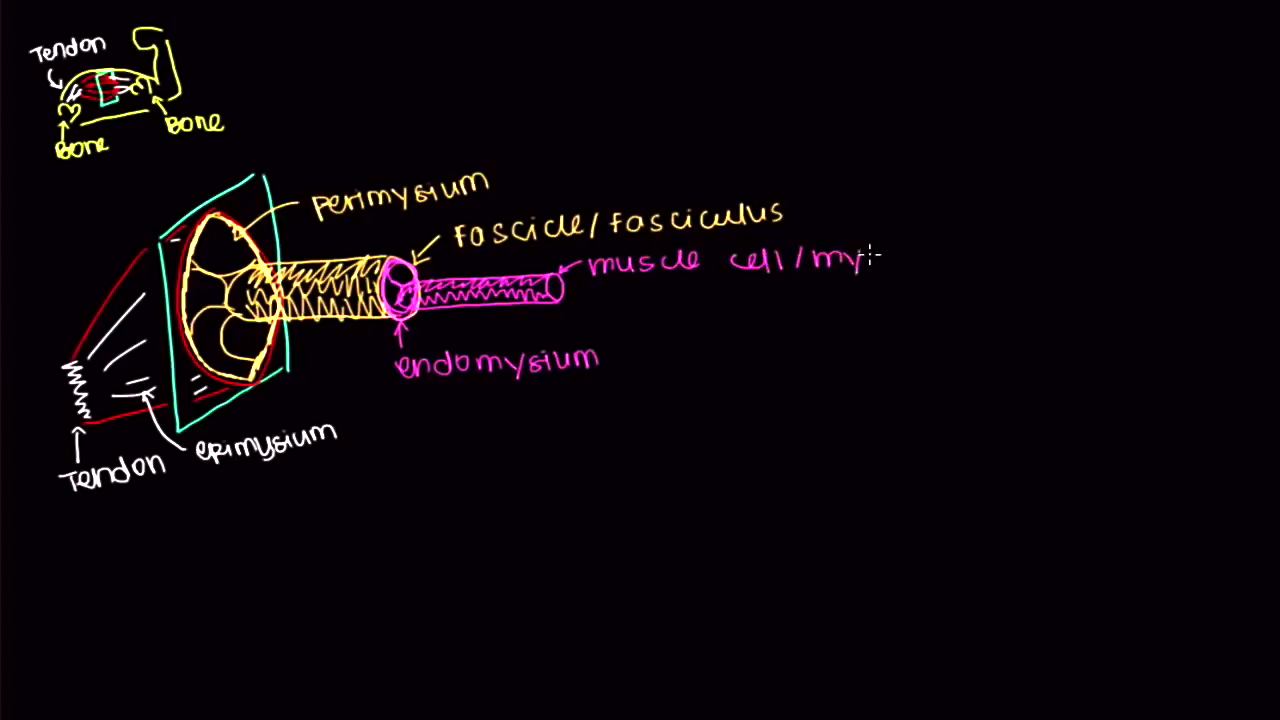 Tendon
Bone
Bone
perimysium
fascicle/fasciculus
muscle cell/my
endomysium
epimysium
Tendon